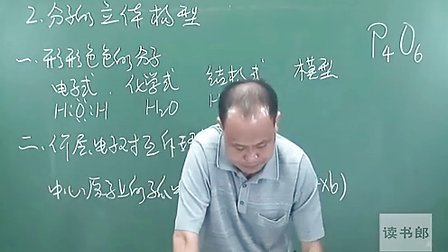 2.分子的立体构型
P₄O₆
一.形形色色的分子
电子式. 化学式 结构式 模型
H:O:H H₂O H
二.价层电子对互斥理
中心原子上的孤 xb)
读书郎